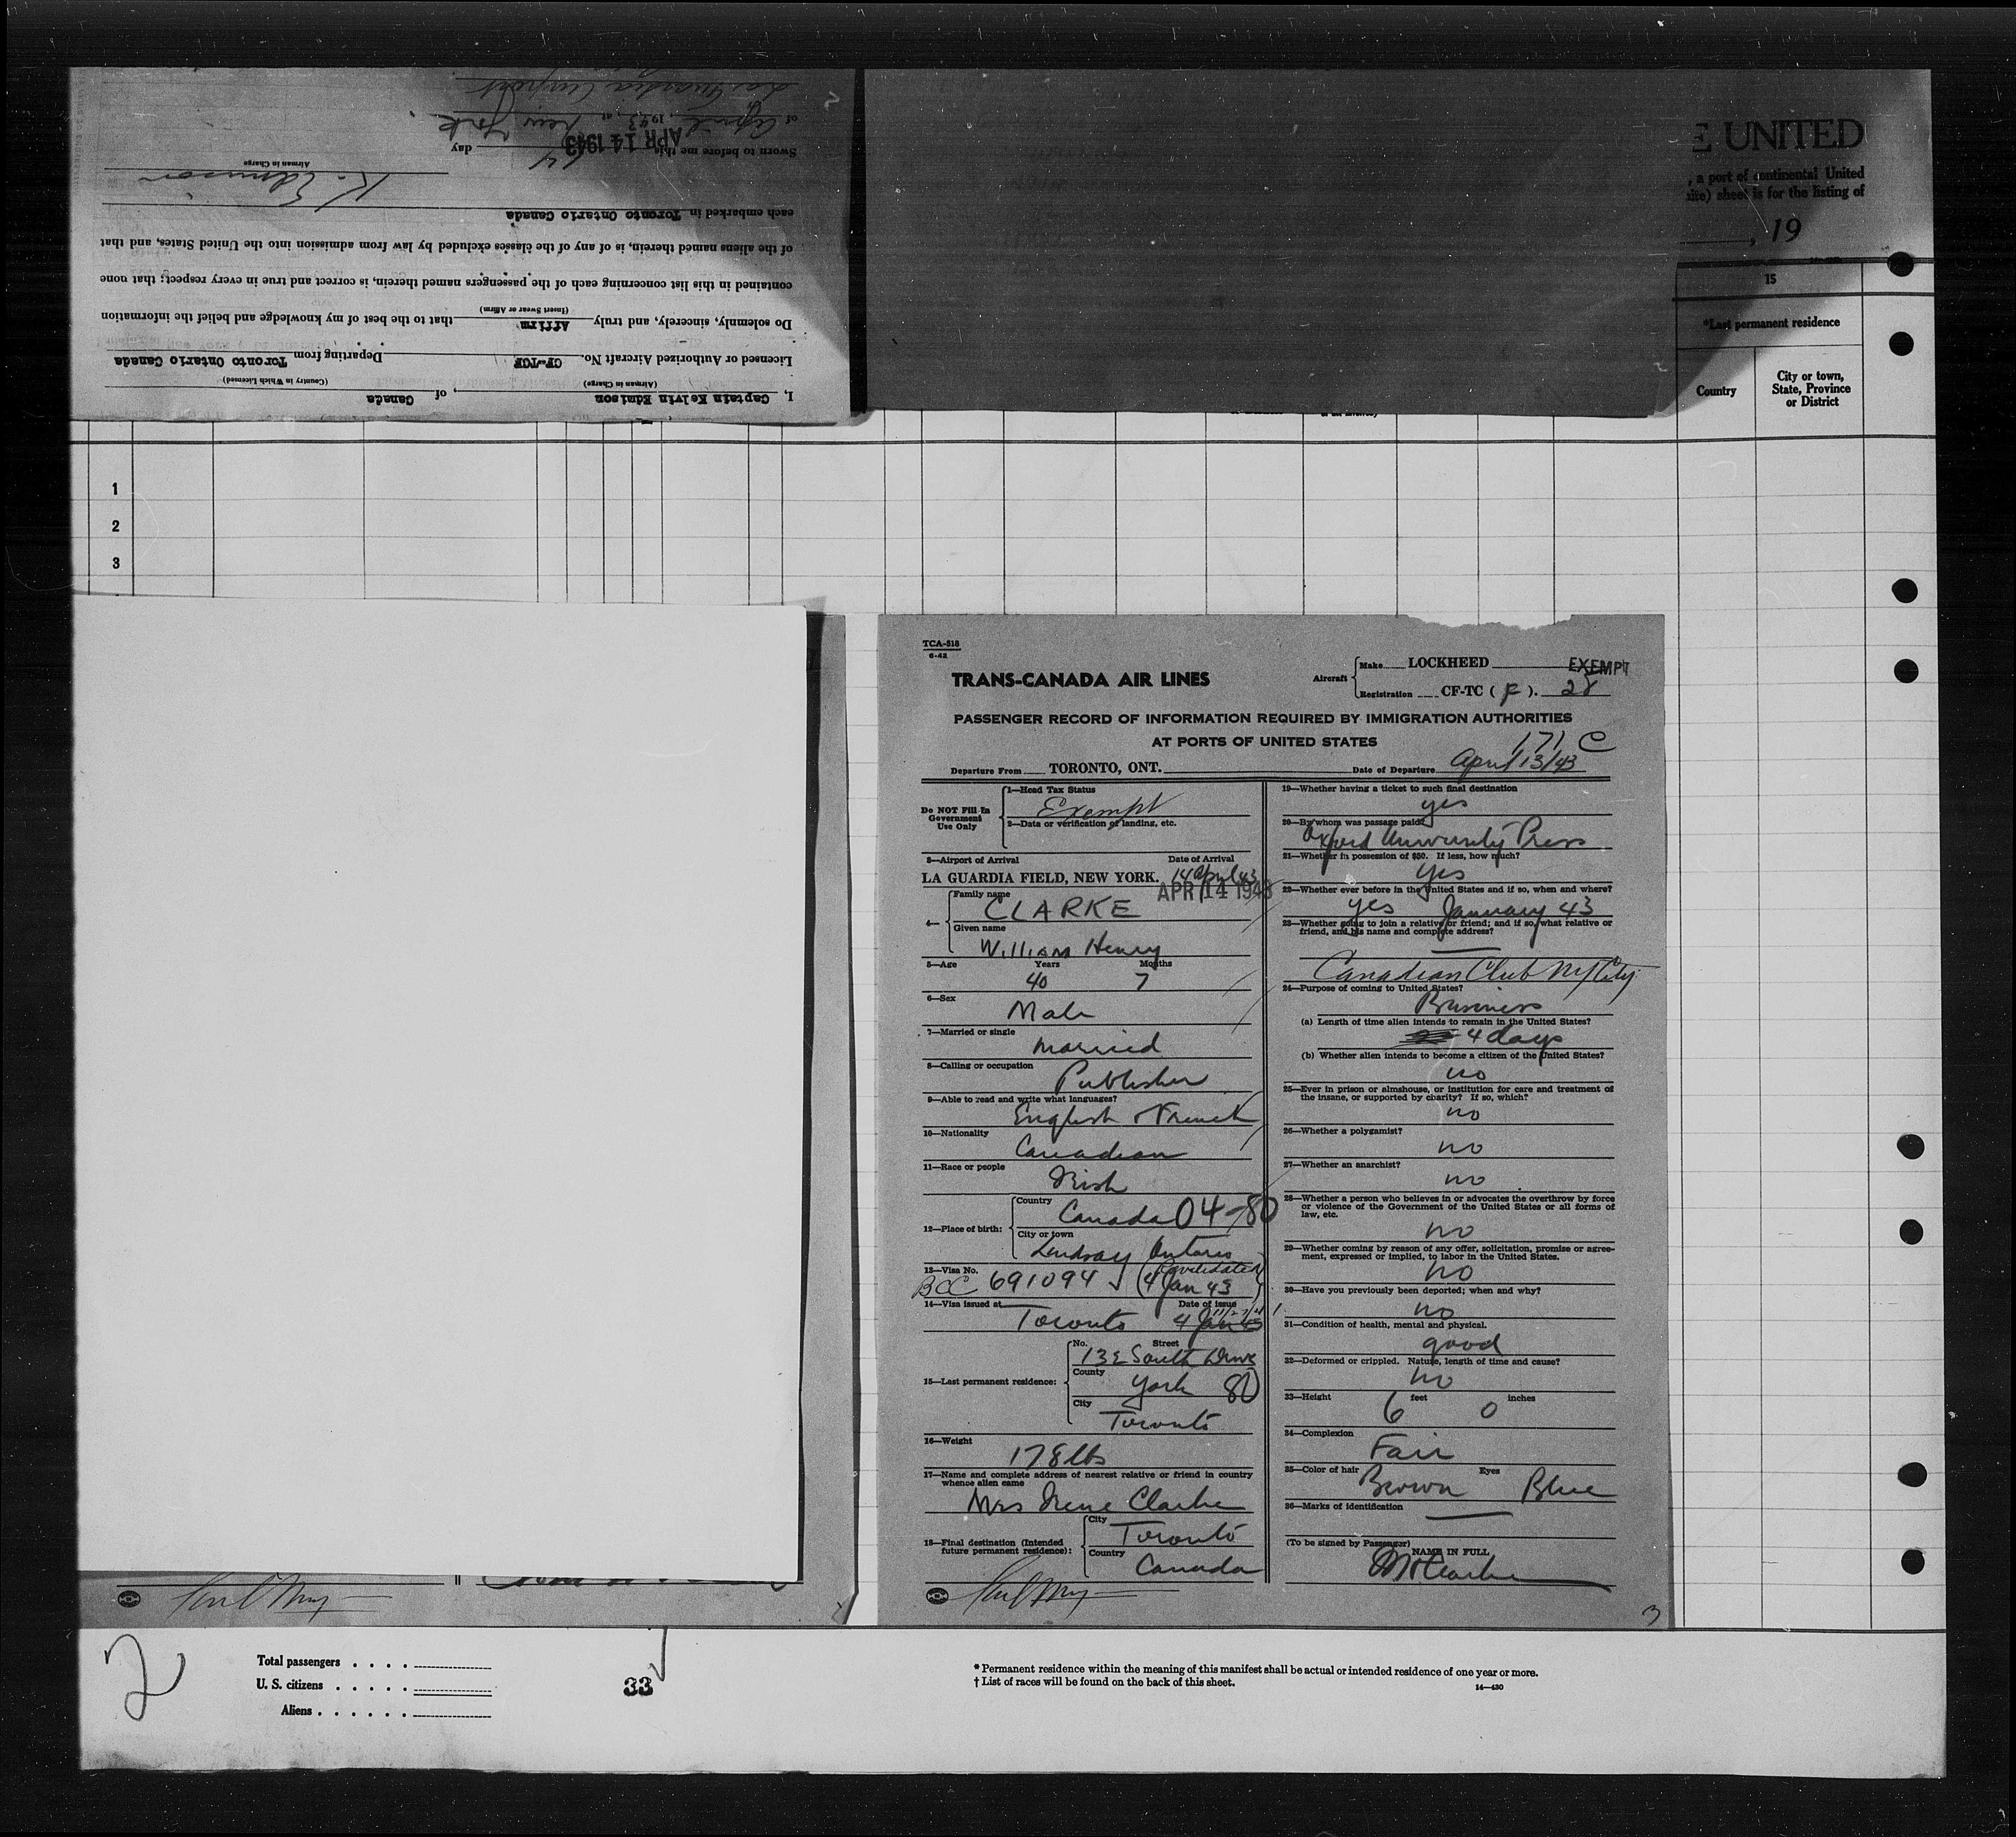 La Guardia Airport
of April, 1943, at New York.
APR 14 1943
Sworn to before me this 14 day
K. Edmison
Airman in Charge
each embarked in Toronto Ontario Canada
of the aliens named therein, is of any of the classes excluded by law from admission into the United States, and that
contained in this list concerning each of the passengers named therein, is correct and true in every respect; that none
(Insert Swear or Affirm)
Do solemnly, sincerely, and truly Affirm that to the best of my knowledge and belief the information
Licensed or Authorized Aircraft No. CF-TCF Departing from Toronto Ontario Canada
(Airman in Charge) (Country in Which Licensed)
I, Captain Kelvin Edmison, of Canada
E UNITED
, a port of continental United
site) sheet is for the listing of
, 19
15
*Last permanent residence
Country
City or town,
State, Province
or District
1
2
3
TCA-518
6-42
TRANS-CANADA AIR LINES
Aircraft
Make LOCKHEED EXEMPT
Registration CF-TC ( F ). 28
PASSENGER RECORD OF INFORMATION REQUIRED BY IMMIGRATION AUTHORITIES
AT PORTS OF UNITED STATES
171 C
Departure From TORONTO, ONT. Date of Departure April 13/43
Do NOT Fill In
Government
Use Only
1—Head Tax Status
Exempt
2—Data or verification of landing, etc.
3—Airport of Arrival Date of Arrival
LA GUARDIA FIELD, NEW YORK. 14 April 43
APR 14 1943
4—
Family name
CLARKE
Given name
William Henry
5—Age Years Months
40 7
6—Sex
Male
7—Married or single
Married
8—Calling or occupation
Publisher
9—Able to read and write what languages?
English & French
10—Nationality
Canadian
11—Race or people
Irish
12—Place of birth:
Country
Canada 04-80
City or town
Lindsay Ontario
13—Visa No. (Revalidated
BCC 691094 4 Jan 43)
14—Visa issued at Date of issue
Toronto 4 Jan 43
15—Last permanent residence:
No. Street
132 South Drive
County
York 80
City
Toronto
16—Weight
178 lbs
17—Name and complete address of nearest relative or friend in country
whence alien came
Mrs Irene Clarke
18—Final destination (Intended
future permanent residence):
City
Toronto
Country
Canada
19—Whether having a ticket to such final destination
yes
20—By whom was passage paid?
Oxford University Press
21—Whether in possession of $50. If less, how much?
yes
22—Whether ever before in the United States and if so, when and where?
yes January 43
23—Whether going to join a relative or friend; and if so, what relative or
friend, and his name and complete address?
Canadian Club NY City
24—Purpose of coming to United States?
Business
(a) Length of time alien intends to remain in the United States?
4 days
(b) Whether alien intends to become a citizen of the United States?
no
25—Ever in prison or almshouse, or institution for care and treatment of
the insane, or supported by charity? If so, which?
no
26—Whether a polygamist?
no
27—Whether an anarchist?
no
28—Whether a person who believes in or advocates the overthrow by force
or violence of the Government of the United States or all forms of
law, etc.
no
29—Whether coming by reason of any offer, solicitation, promise or agree-
ment, expressed or implied, to labor in the United States.
no
30—Have you previously been deported; when and why?
no
31—Condition of health, mental and physical.
good
32—Deformed or crippled. Nature, length of time and cause?
no
33—Height feet inches
6 0
34—Complexion
Fair
35—Color of hair Eyes
Brown Blue
36—Marks of identification
(To be signed by Passenger)
NAME IN FULL
WHClarke
3
2
Total passengers
U. S. citizens
Aliens
33
* Permanent residence within the meaning of this manifest shall be actual or intended residence of one year or more.
† List of races will be found on the back of this sheet.
14—430